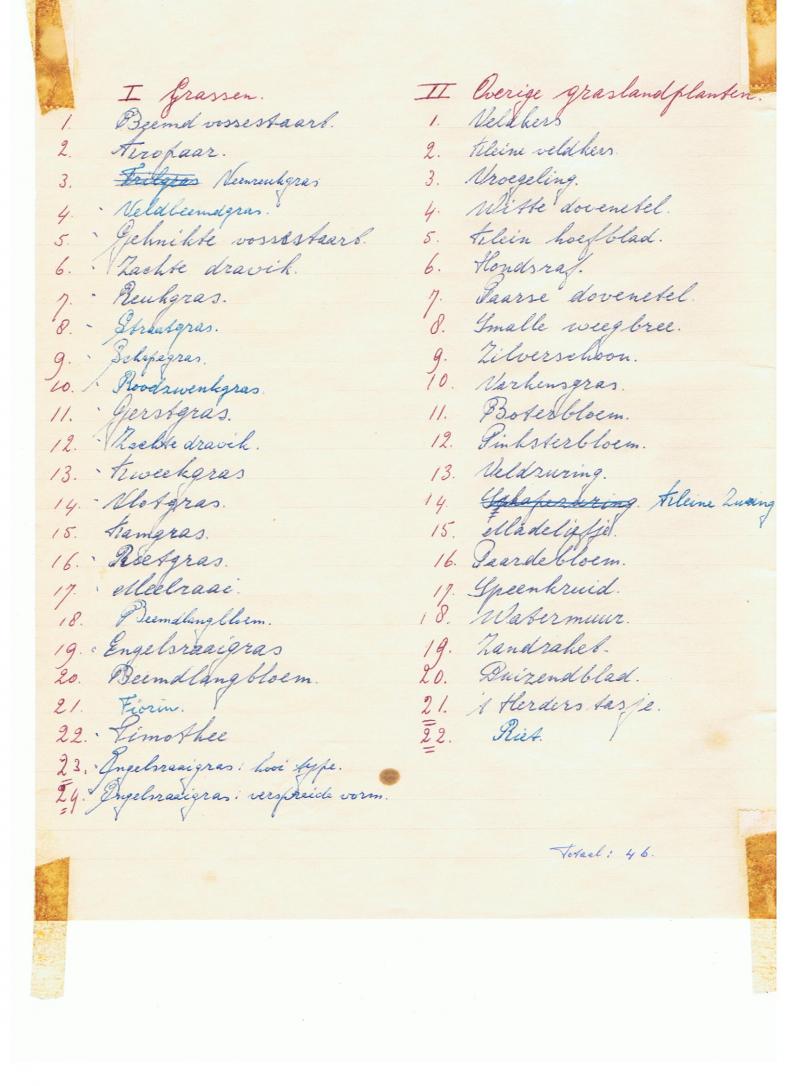 I Grassen.
1. Beemd vossestaart.
2. Kropaar.
3. Trilgras Veenreukgras
4. Veldbeemdgras.
5. Geknikte vossestaart.
6. Zachte dravik.
7. Reukgras.
8. Straatgras.
9. Schapegras.
10. Roodzwenkgras.
11. Gerstgras.
12. Zachte dravik.
13. Kweekgras
14. Vlotgras.
15. Kamgras.
16. Rietgras.
17. Meelraai.
18. Beemdlangbloem.
19. Engelsraaigras
20. Beemdlangbloem.
21. Fiorin.
22. Timothee
23. Engelsraaigras: hooi type.
24. Engelsraaigras: verspreide vorm.
II Overige graslandplanten.
1. Veldkers
2. Kleine veldkers.
3. Vroegeling.
4. Witte dovenetel.
5. Klein hoefblad.
6. Hondsraf.
7. Paarse dovenetel.
8. Smalle weegbree.
9. Zilverschoon.
10. Varkensgras.
11. Boterbloem.
12. Pinksterbloem.
13. Veldzuring.
14. Schapezuring. Kleine Zuring
15. Madeliefje.
16. Paardebloem.
17. Speenkruid.
18. Watermuur.
19. Zandraket.
20. Duizendblad.
21. 's Herders tasje.
22. Riet.
Totaal: 46.